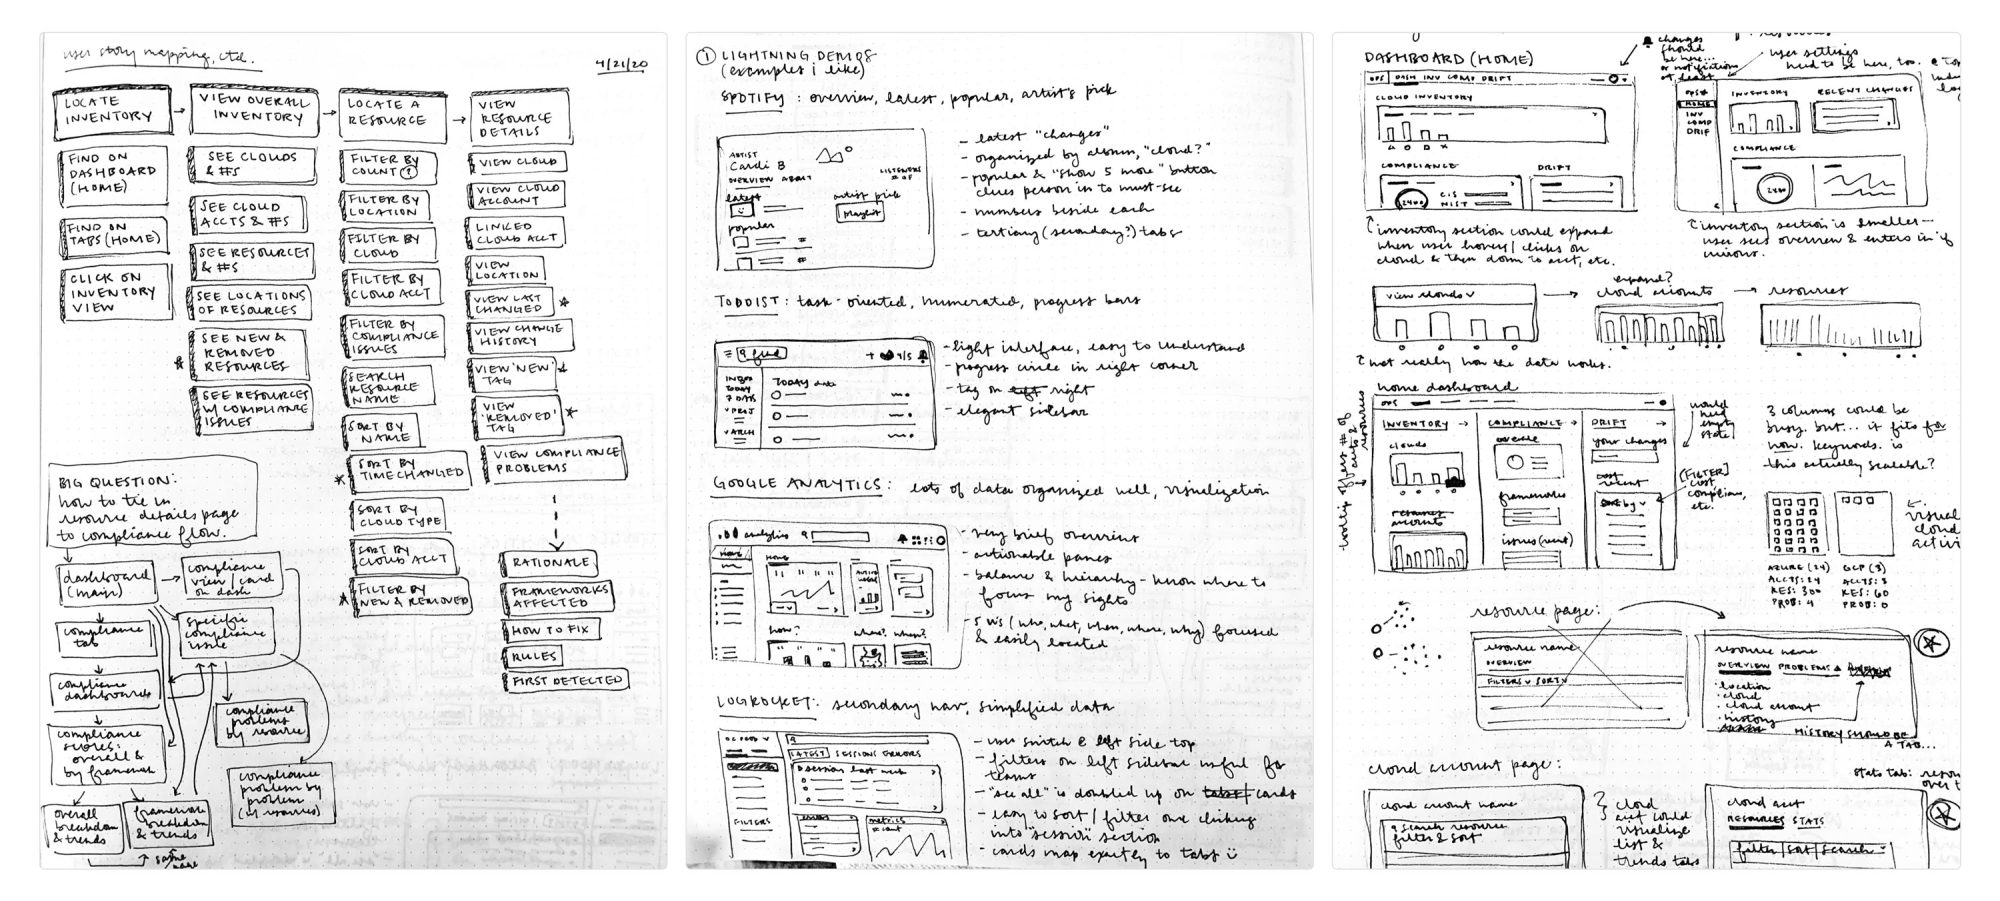 user story mapping, ctd.
4/21/20
LOCATE
INVENTORY
FIND ON
DASHBOARD
(HOME)
FIND ON
TABS (HOME)
CLICK ON
INVENTORY
VIEW
VIEW OVERALL
INVENTORY
SEE CLOUDS
& #S
SEE CLOUD
ACCTS & #S
SEE RESOURCES
& #S
SEE LOCATIONS
OF RESOURCES
SEE NEW &
REMOVED
RESOURCES
SEE RESOURCES
W/ COMPLIANCE
ISSUES
LOCATE A
RESOURCE
FILTER BY
COUNT ?
FILTER BY
LOCATION
FILTER BY
CLOUD
FILTER BY
CLOUD ACCT
FILTER BY
COMPLIANCE
ISSUES
SEARCH
RESOURCE
NAME
SORT BY
NAME
SORT BY
TIME CHANGED
SORT BY
CLOUD TYPE
SORT BY
CLOUD ACCT
FILTER BY
NEW & REMOVED
VIEW
RESOURCE
DETAILS
VIEW CLOUD
VIEW CLOUD
ACCOUNT
LINKED
CLOUD ACCT
VIEW
LOCATION
VIEW LAST
CHANGED
VIEW CHANGE
HISTORY
VIEW 'NEW'
TAG
VIEW
'REMOVED'
TAG
VIEW COMPLIANCE
PROBLEMS
RATIONALE
FRAMEWORKS
AFFECTED
HOW TO FIX
RULES
FIRST DETECTED
BIG QUESTION:
how to tie in
resource details page
to compliance flow.
dashboard
(main)
compliance
view/card
on dash
compliance
tab
specific
compliance
issue
compliance
dashboards
compliance
problems
by resource
compliance
scores:
overall &
by framework
compliance
problem by
problem
(w/ resources)
overall
breakdown
& trends
framework
breakdown
& trends
same
page
1 LIGHTNING DEMOS
(examples i like)
SPOTIFY: overview, latest, popular, artist's pick
ARTIST
Cardi B
OVERVIEW ABOUT
LISTENERS
# OF
latest
artist pick
playlist
popular
- latest "changes"
- organized by album, "cloud?"
- popular & "show 5 more" button
clues person in to must-see
- numbers beside each
- tertiary (secondary?) tabs
TODOIST: task-oriented, numerated, progress bars
find
INBOX
TODAY
7 DAYS
PROJ
ARCH
TODAY
- light interface, easy to understand
- progress circle in right corner
- tag on left right
- elegant sidebar
GOOGLE ANALYTICS: lots of data organized well, visualization
analytics
HOME
how?
where?
when?
- very brief overview
- actionable panes
- balance & hierarchy - know where to
focus my sights
- 5 W's (who, what, when, where, why) focused
& easily located
LOGROCKET: secondary nav, simplified data
LATEST SESSIONS ERRORS
session last week
errors
metrics
FILTERS
- user switch @ left side top
- filters on left sidebar useful for
teams
- "see all" is doubled up on tabs/ cards
- easy to sort/filter once clicking
into "session" section
- cards map exactly to tabs
DASHBOARD (HOME)
changes
should
be here...
or notifications
at least
user settings
need to be here, too.
OPS DASH INV COMP DRIFT
CLOUD INVENTORY
COMPLIANCE
2400
CIS
NIST
DRIFT
HOME
INV
COMP
DRIF
INVENTORY
RECENT CHANGES
COMPLIANCE
2400
inventory section could expand
when user hovers/clicks on
cloud & then down to acct, etc.
inventory section is smaller –
user sees overview & enters in if
curious.
view clouds
expand?
cloud accounts
resources
not really how the data works.
home dashboard
OPS
INVENTORY
clouds
resources
accounts
COMPLIANCE
overall
frameworks
issues (recent)
DRIFT
your changes
recent
sort by
tooltip offers # of
accts &
resources
would
need
empty
state
[FILTER]
cost,
compliance,
etc.
3 columns could be
busy. but... it fits for
now. keywords. is
this actually scalable?
AZURE (24)
ACCTS: 24
RES: 300
PROB: 4
GCP (3)
ACCTS: 3
RES: 60
PROB: 0
visual
cloud
resource page:
resource name
OVERVIEW
FILTERS SORT
resource name
OVERVIEW PROBLEMS
· location
· cloud
· cloud account
· history
HISTORY SHOULD BE
A TAB...
cloud account page:
cloud account name
search resource
filter & sort
cloud
acct could
visualize
list &
trends tabs
stats tab:
over
cloud acct
RESOURCES STATS
filter/sort/search